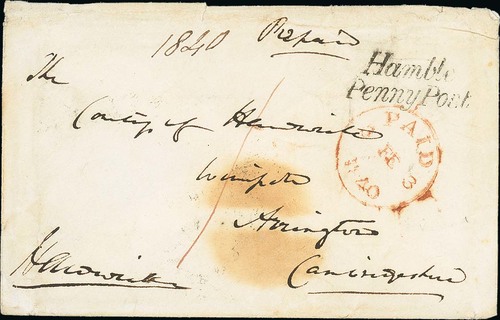 1840 Prepaid
Hamble
Penny Post
The
Countess of Hardwicke
PAID
FE 3
1840
Wimpole
Arrington
Hardwicke
Cambridgeshire